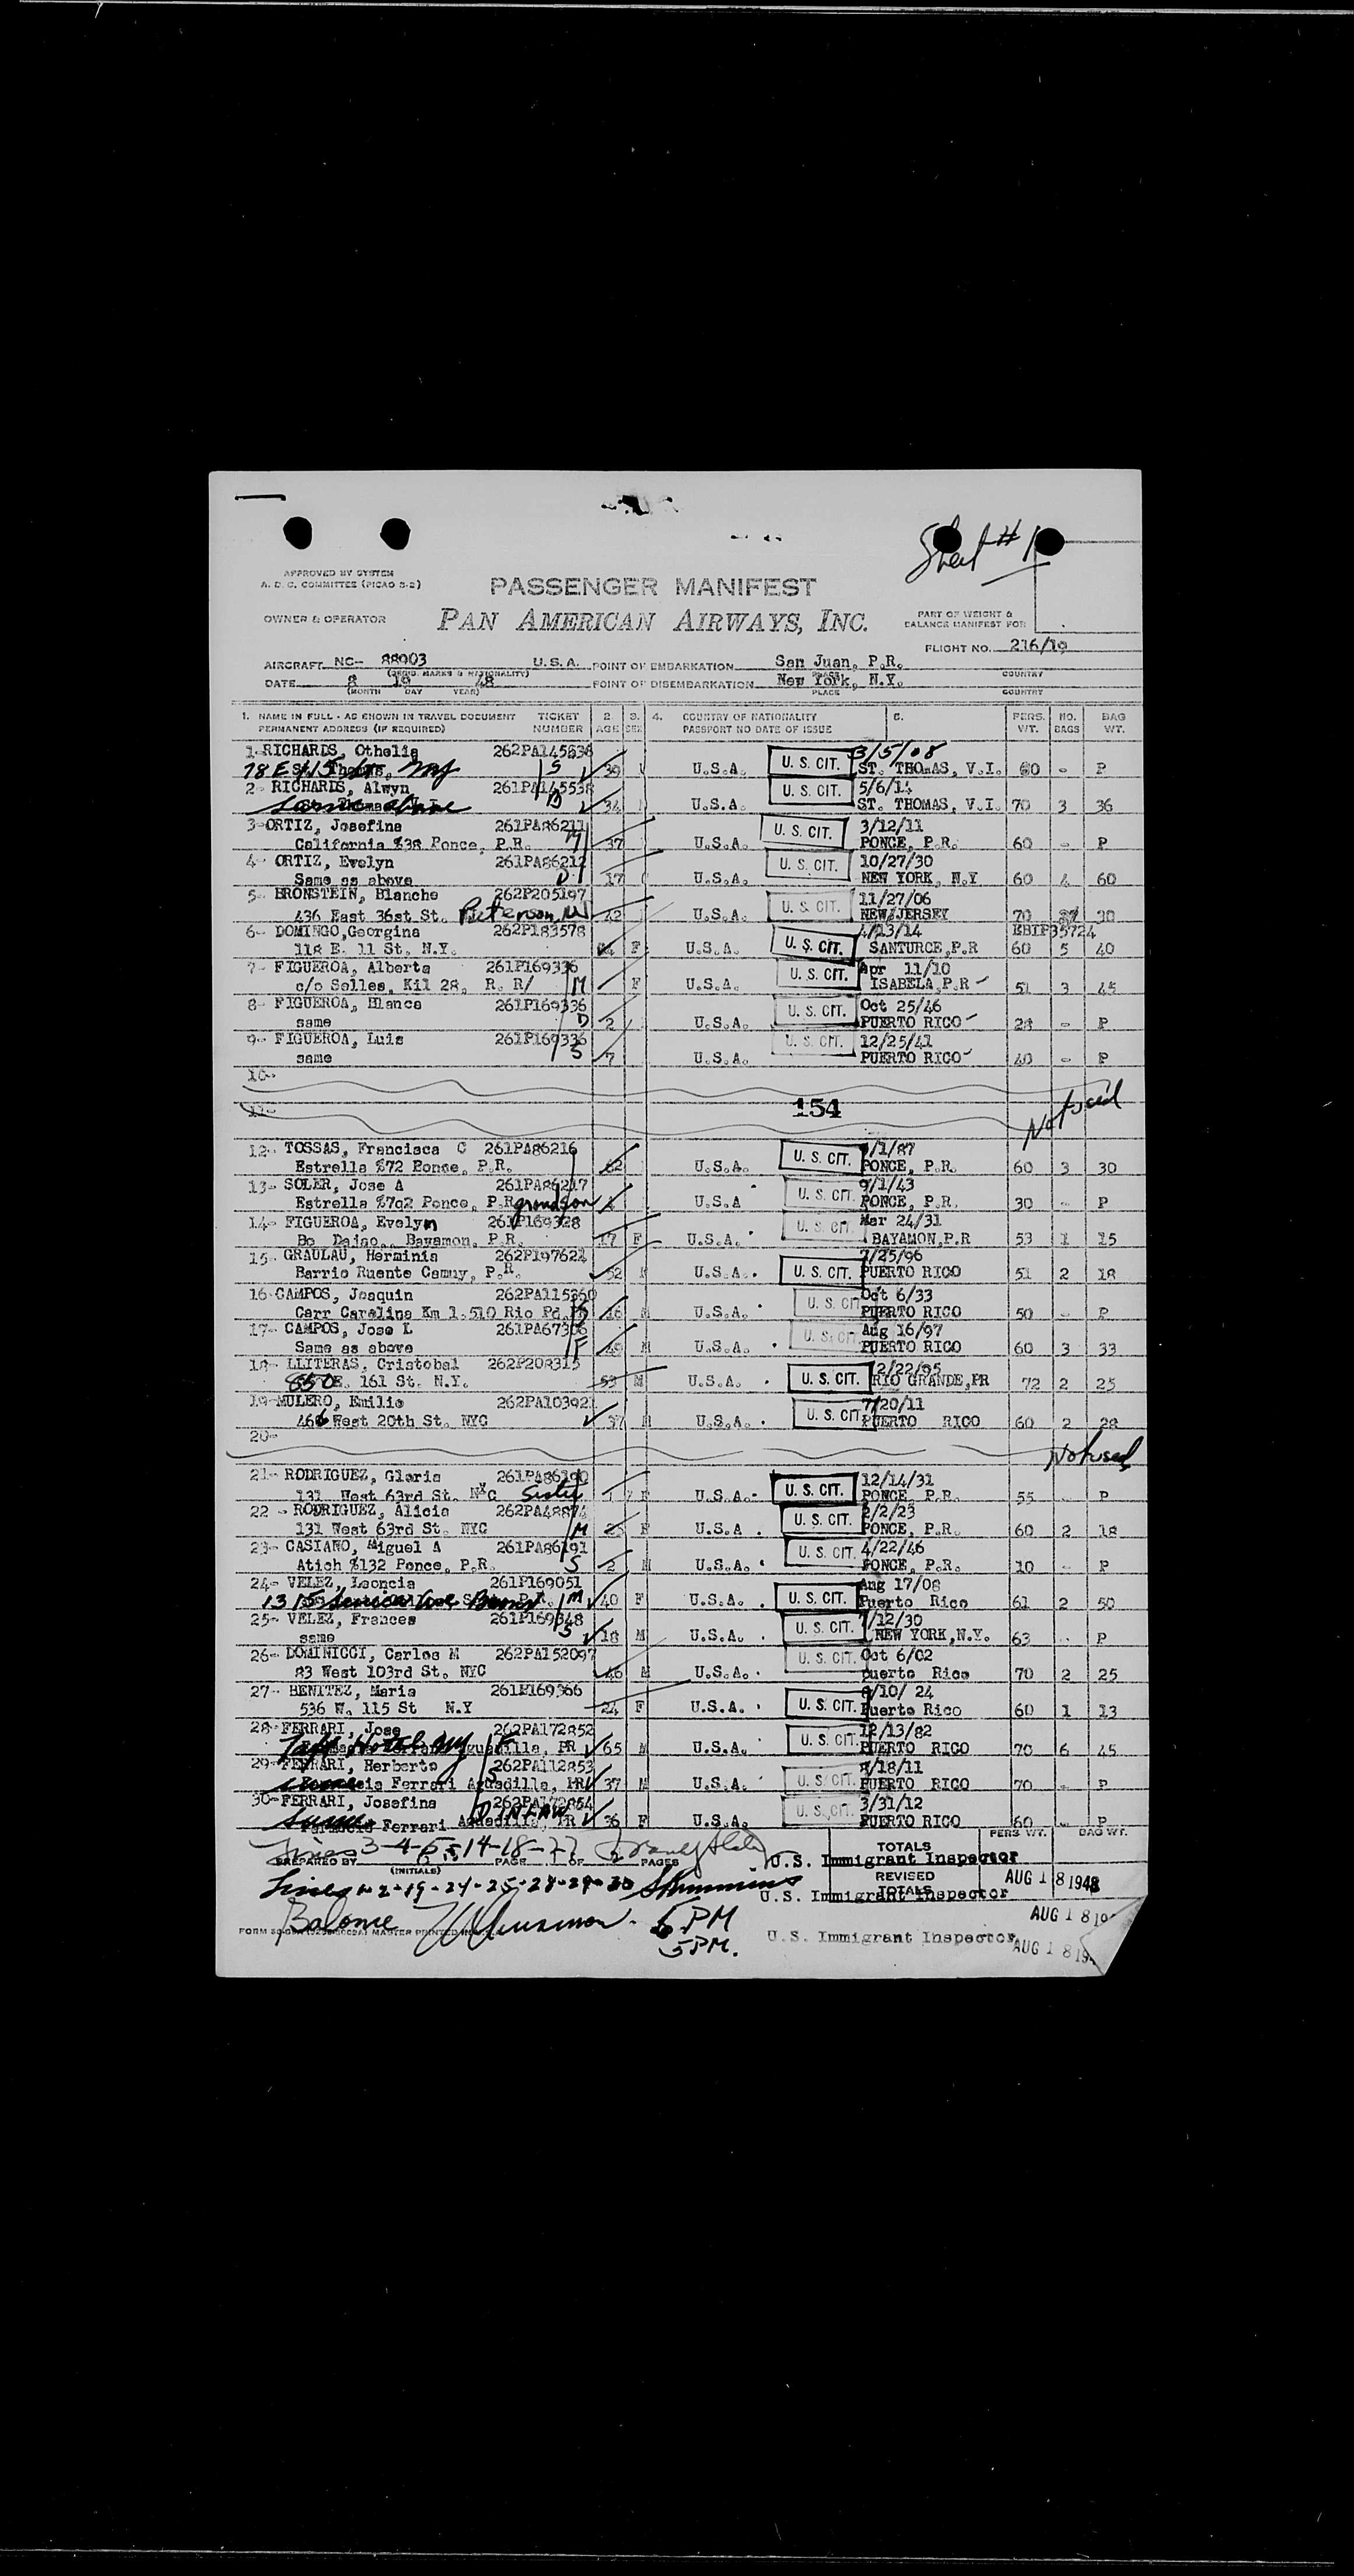 Sheet #1
APPROVED BY SYSTEM
A. D. C. COMMITTEE (PICAO 3-2)
PASSENGER MANIFEST
OWNER & OPERATOR
PAN AMERICAN AIRWAYS, INC.
PART OF WEIGHT &
BALANCE MANIFEST FOR
FLIGHT NO. 216/19
AIRCRAFT NC- 88903 U.S.A. POINT OF EMBARKATION San Juan, P.R.
(REGIS. MARKS & NATIONALITY) PLACE COUNTRY
DATE 8 19 48 POINT OF DISEMBARKATION New York, N.Y.
(MONTH DAY YEAR) PLACE COUNTRY
1. NAME IN FULL - AS SHOWN IN TRAVEL DOCUMENT TICKET 2. 3. 4. COUNTRY OF NATIONALITY 5. PERS. NO. BAG
PERMANENT ADDRESS (IF REQUIRED) NUMBER AGE SEX PASSPORT NO DATE OF ISSUE WT. BAGS WT.
1-RICHARDS, Othelia 262PA145638 3/5/08
78 E 115 S 39 U.S.A. U. S. CIT. ST. THOMAS, V.I. 60 - P
2- RICHARDS, Alwyn 261PA145538 5/6/14
same above 34 U.S.A. U. S. CIT. ST. THOMAS, V.I. 70 3 36
3-ORTIZ, Josefina 261PA86211 3/12/11
California #38 Ponce, P.R. M 37 U.S.A. U. S. CIT. PONCE, P.R. 60 - P
4- ORTIZ, Evelyn 261PA86212 10/27/30
Same as above D 17 U.S.A. U. S. CIT. NEW YORK, N.Y 60 4 60
5- BRONSTEIN, Blanche 262P205197 11/27/06
436 East 36st St. Paterson, NJ 42 U.S.A. U. S. CIT. NEW JERSEY 70 30
6- DOMINGO,Georgina 262P183578 4/23/14 EBIP35724
118 E. 11 St, N.Y. F U.S.A. U. S. CIT. SANTURCE,P.R 60 5 40
7- FIGUEROA, Alberta 261P169336 Apr 11/10
c/o Selles, Kil 28, R. R/ M F U.S.A. U. S. CIT. ISABELA,P.R 51 3 45
8- FIGUEROA, Blanca 261P169336 Oct 25/46
same D 2 U.S.A. U. S. CIT. PUERTO RICO 28 - P
9- FIGUEROA, Luis 261P169336 12/25/41
same S 7 U.S.A. U. S. CIT. PUERTO RICO 40 - P
10-
11- 154 Not used
12- TOSSAS, Francisca C 261PA86216 /1/87
Estrella #72 Ponce, P.R. 62 U.S.A. U. S. CIT. PONCE, P.R. 60 3 30
13- SOLER, Jose A 261PA86217 9/1/43
Estrella #7q2 Ponce, P.R grandson 4 U.S.A U. S. CIT. PONCE, P.R. 30 - P
14- FIGUEROA, Evelyn 261P169328 Mar 24/31
Bo Dajao, Bayamon, P.R. 17 F U.S.A. U. S. CIT BAYAMON,P.R 53 1 15
15- GRAULAU, Herminia 262P197621 7/25/96
Barrio Ruente Camuy, P.R. 52 U.S.A. U. S. CIT. PUERTO RICO 51 2 18
16-CAMPOS, Joaquin 262PA115360 Oct 6/33
Carr Caralina Km 1.510 Rio Pd. 16 M U.S.A. U. S. CIT PUERTO RICO 50 - P
17- CAMPOS, Jose L 261PA67306 Aug 16/97
Same as above F 49 M U.S.A. U. S. CIT PUERTO RICO 60 3 33
18- LLITERAS, Cristobal 262P208315 12/22/95
850 E. 161 St. N.Y. 53 M U.S.A. U. S. CIT. RIO GRANDE,PR 72 2 25
19-MULERO, Emilio 262PA103921 7/20/11
466 West 20th St. NYC 37 M U.S.A. U. S. CIT PUERTO RICO 60 2 28
20- Not used
21- RODRIGUEZ, Gloria 261PA86190 12/14/31
131 West 63rd St. NYC Sister F U.S.A. U. S. CIT. PONCE, P.R. 55 - P
22 - RODRIGUEZ, Alicia 262PA48874 2/2/23
131 West 63rd St. NYC M 25 F U.S.A. U. S. CIT. PONCE, P.R. 60 2 18
23- CASIANO, Miguel A 261PA86191 4/22/46
Atich #132 Ponce, P.R. S 2 M U.S.A. U. S. CIT. PONCE, P.R. 10 - P
24- VELEZ, Leoncia 261P169051 Aug 17/08
1315 Ave Bronx M 40 F U.S.A. U. S. CIT. Puerto Rico 61 2 50
25- VELEZ, Frances 261P169348 /12/30
same S 18 M U.S.A. U. S. CIT. NEW YORK,N.Y. 63 - P
26- DOMINICCI, Carlos M 262PA152097 Oct 6/02
83 West 103rd St. NYC 46 M U.S.A. U. S. CIT. Puerto Rico 70 2 25
27- BENITEZ, Maria 261P169366 /10/ 24
536 W. 115 St N.Y 24 F U.S.A. U. S. CIT. Puerto Rico 60 1 13
28-FERRARI, Jose 262PA172852 12/13/82
Taft Hotel NY F Aguadilla, PR 65 M U.S.A. U. S. CIT PUERTO RICO 70 6 45
29-FERRARI, Herberto 262PA112853 /18/11
Ferrari Aguadilla, PR S 37 M U.S.A. U. S. CIT. PUERTO RICO 70 - P
30-FERRARI, Josefina 262PA172854 3/31/12
same Farmacia Ferrari Aguadilla, PR D IN LAW 36 F U.S.A. U. S. CIT. PUERTO RICO 60 - P
Lines 3-4-5-14-18-27
PREPARED BY (INITIALS) PAGE OF PAGES
TOTALS PERS WT. BAG WT.
U.S. Immigrant Inspector
REVISED TOTALS AUG 18 1948
Lines 1-2-19-24-25-28-29-30
U.S. Immigrant Inspector
AUG 18 19
Balance 5 PM
5 PM.
U.S. Immigrant Inspector AUG 18 19